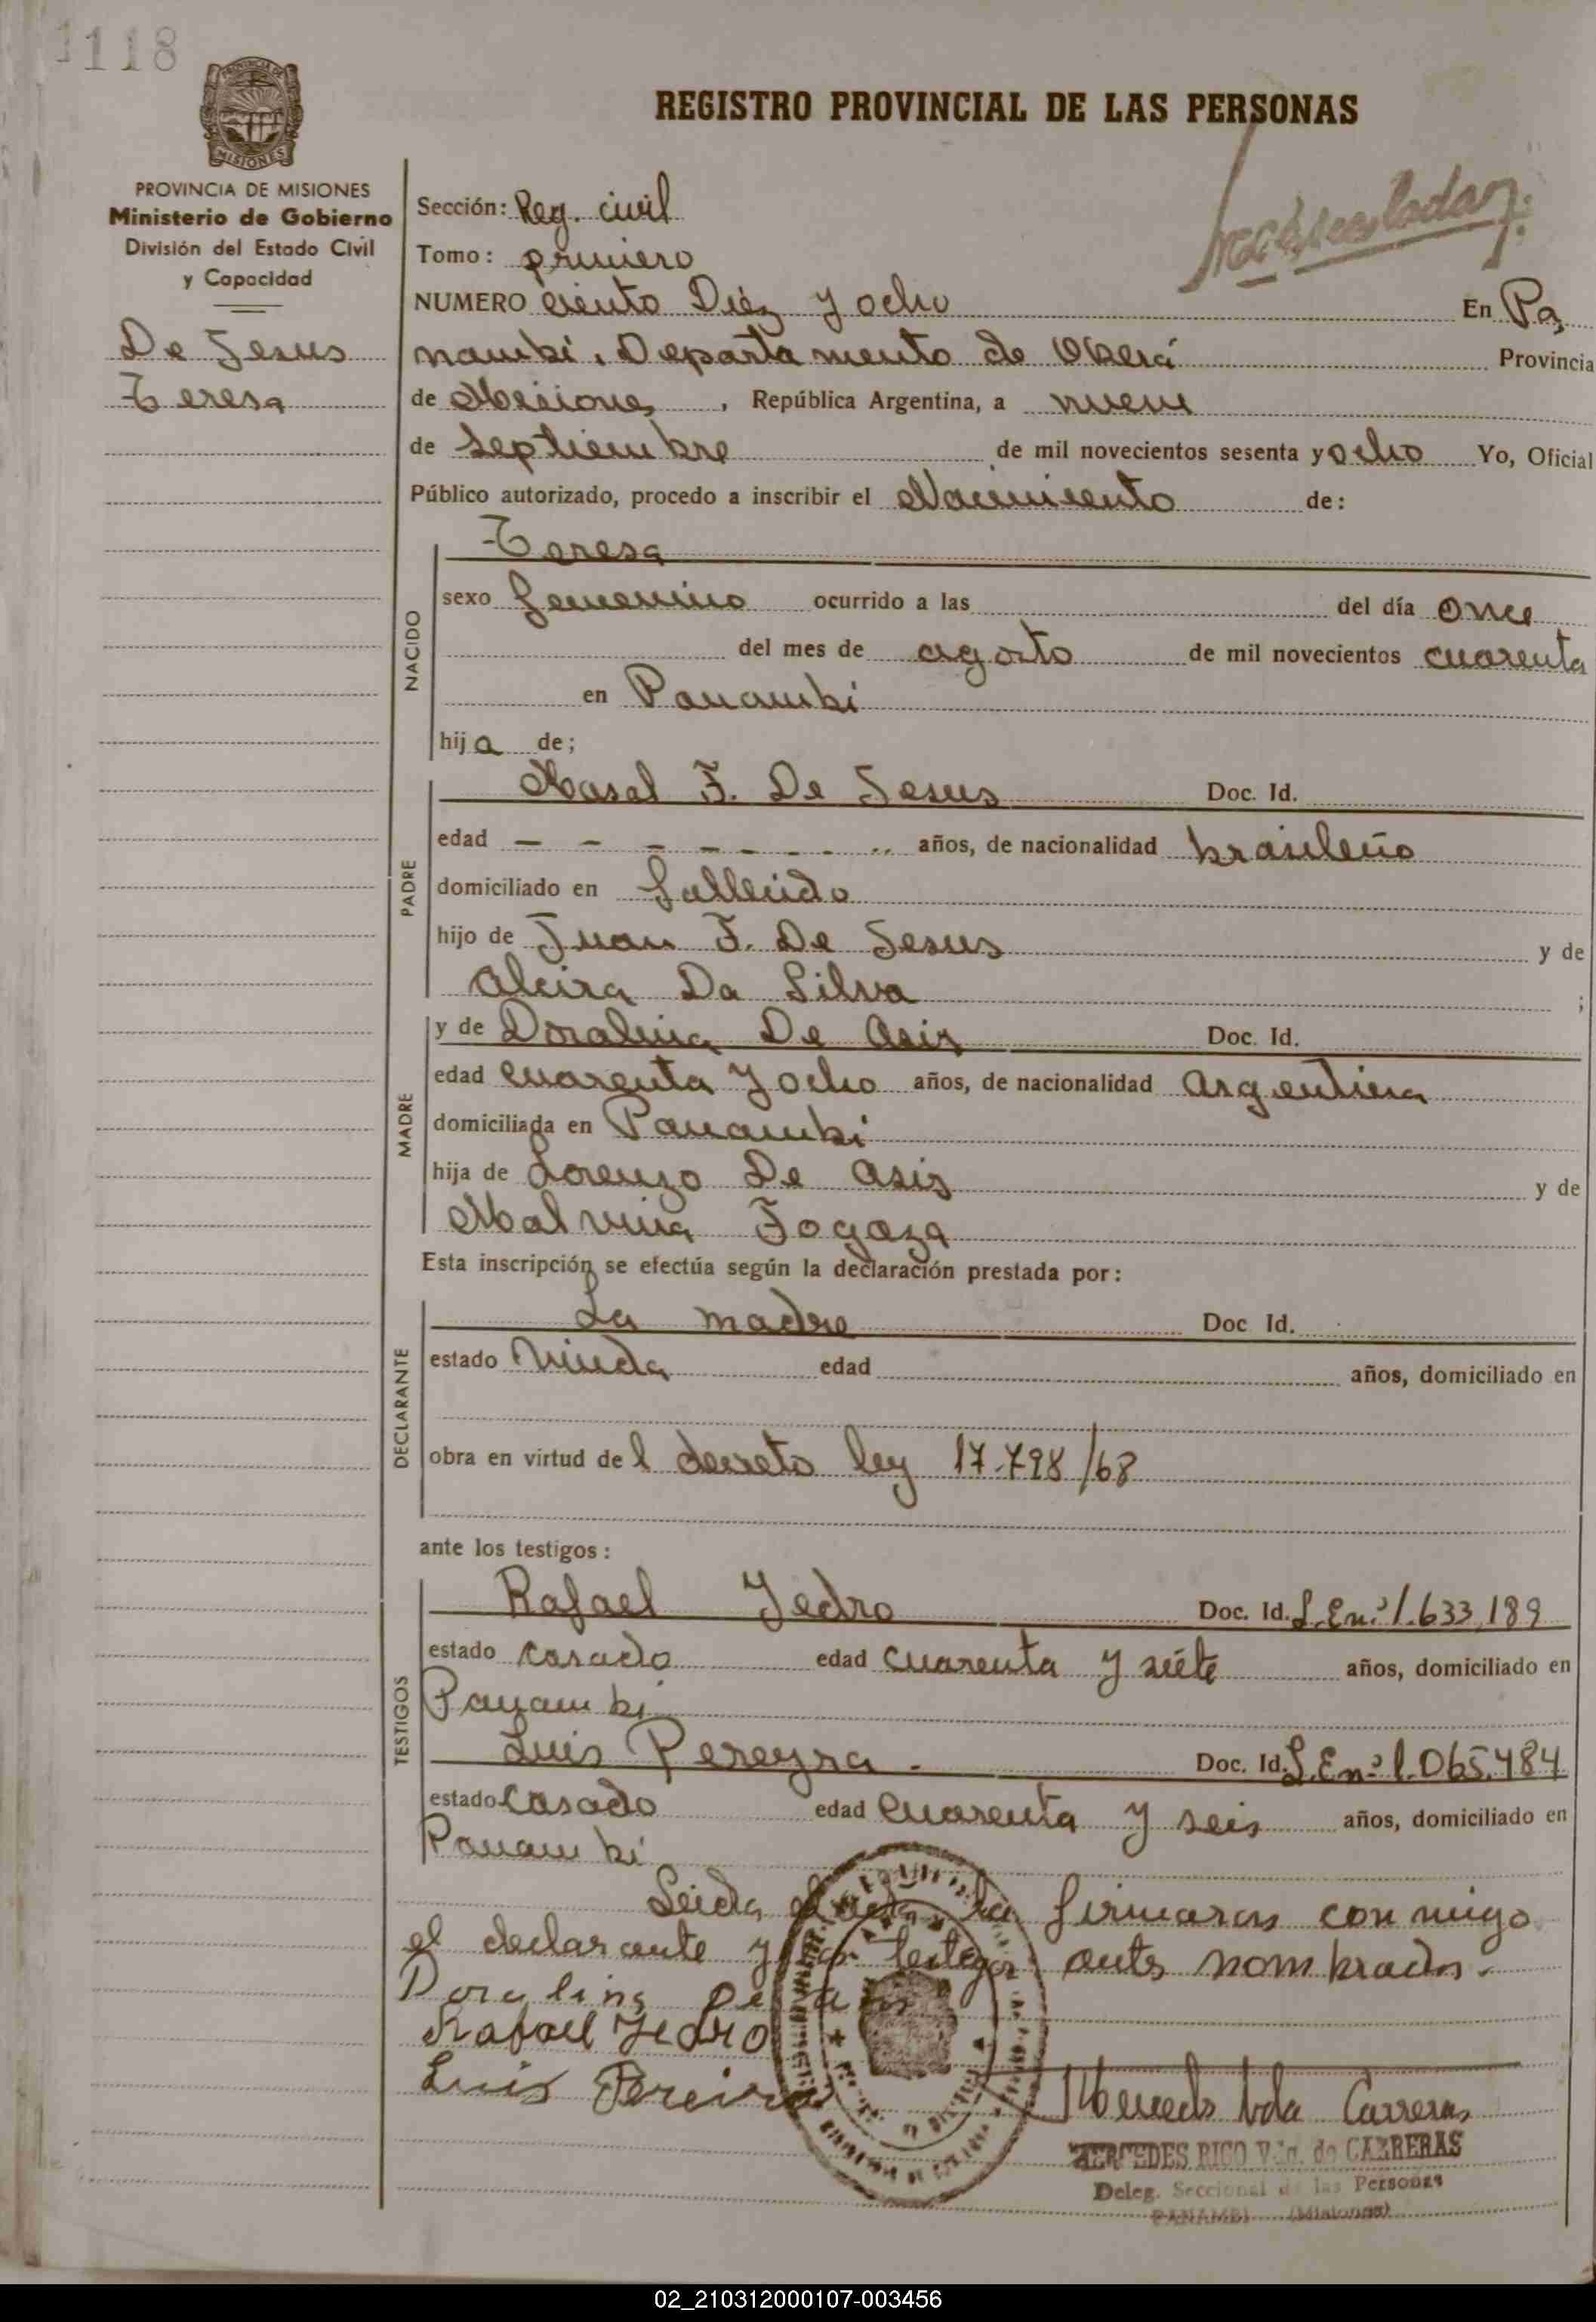 118
PROVINCIA DE MISIONES
REGISTRO PROVINCIAL DE LAS PERSONAS
PROVINCIA DE MISIONES
Ministerio de Gobierno
División del Estado Civil
y Capacidad
De Jesus
Teresa
Sección: Reg. civil
Tomo: primero
NUMERO ciento Diéz y ocho En Pa
nambi, Departamento de Oberá Provincia
de Misiones, República Argentina, a nueve
de septiembre de mil novecientos sesenta y ocho Yo, Oficial
Público autorizado, procedo a inscribir el Nacimiento de:
NACIDO
Teresa
sexo femenino ocurrido a las del día once
del mes de agosto de mil novecientos cuarenta
en Panambi
hija de;
PADRE
F. De Jesus Doc. Id.
edad - - - - - - - - años, de nacionalidad brasileño
domiciliado en fallecido
hijo de Juan F. De Jesus y de
Alcira Da Silva ;
MADRE
y de Doralina De Asis Doc. Id.
edad cuarenta y ocho años, de nacionalidad Argentina
domiciliada en Panambi
hija de Lorenzo De Asis y de
Malvina Fogaza
Esta inscripción se efectúa según la declaración prestada por:
DECLARANTE
La madre Doc Id.
estado viuda edad años, domiciliado en
obra en virtud del decreto ley 17.798/68
ante los testigos:
TESTIGOS
Rafael Yedro Doc. Id. L.E.nº 1.633,189
estado casado edad cuarenta y siéte años, domiciliado en
Panambi
Luis Pereyra. Doc. Id. L.E.nº 1.065.484
estado casado edad cuarenta y seis años, domiciliado en
Panambi
Leida el acta la firmaron conmigo
el declarante y los testigos antes nombrados.
Doralina De Asis
Rafael Yedro
Luis Pereira
Mercedes Vda Carreras
MERCEDES RICO Vda. de CARRERAS
Deleg. Seccional de las Personas
PANAMBI (Misiones)
02_210312000107-003456